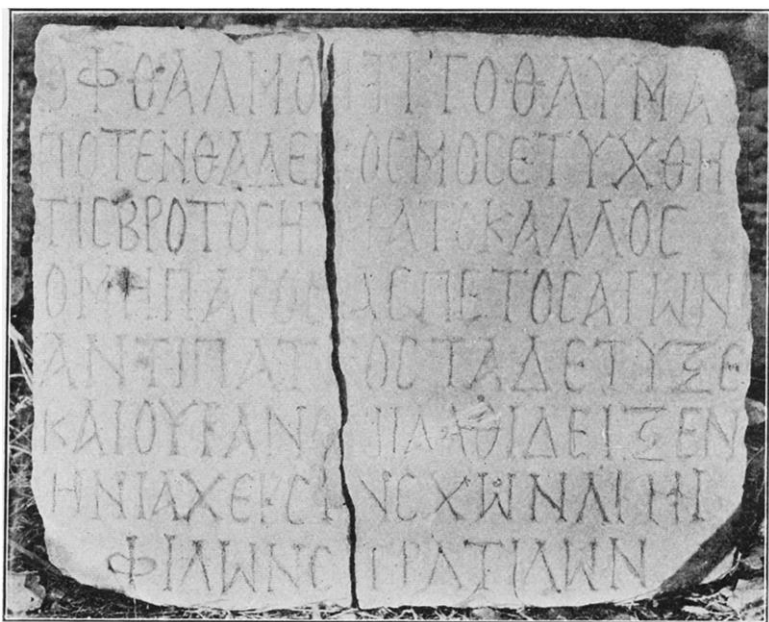 ΟΦΘΑΛΜΟΙ ΤΙ ΤΟ ΘΑΥΜΑ
ΠΟΤΕΝΘΑΔΕΚΟϹΜΟϹΕΤΥΧΘΗ
ΤΙϹΒΡΟΤΟϹΗΥΡΑΤΟΚΑΛΛΟϹ
ΟΜΗΠΑΡΟϹΑϹΠΕΤΟϹΑΙωΝ
ΑΝΤΙΠΑΤΡΟϹΤΑΔΕΤΥΞΕ
ΚΑΙΟΥΡΑΝ ΔΕΙΞΕΝ
ΗΝΙΑΧΕΡϹΙΝΕΧωΝ
ΦΙΛωΝϹΤΡΑΤΙΑωΝ